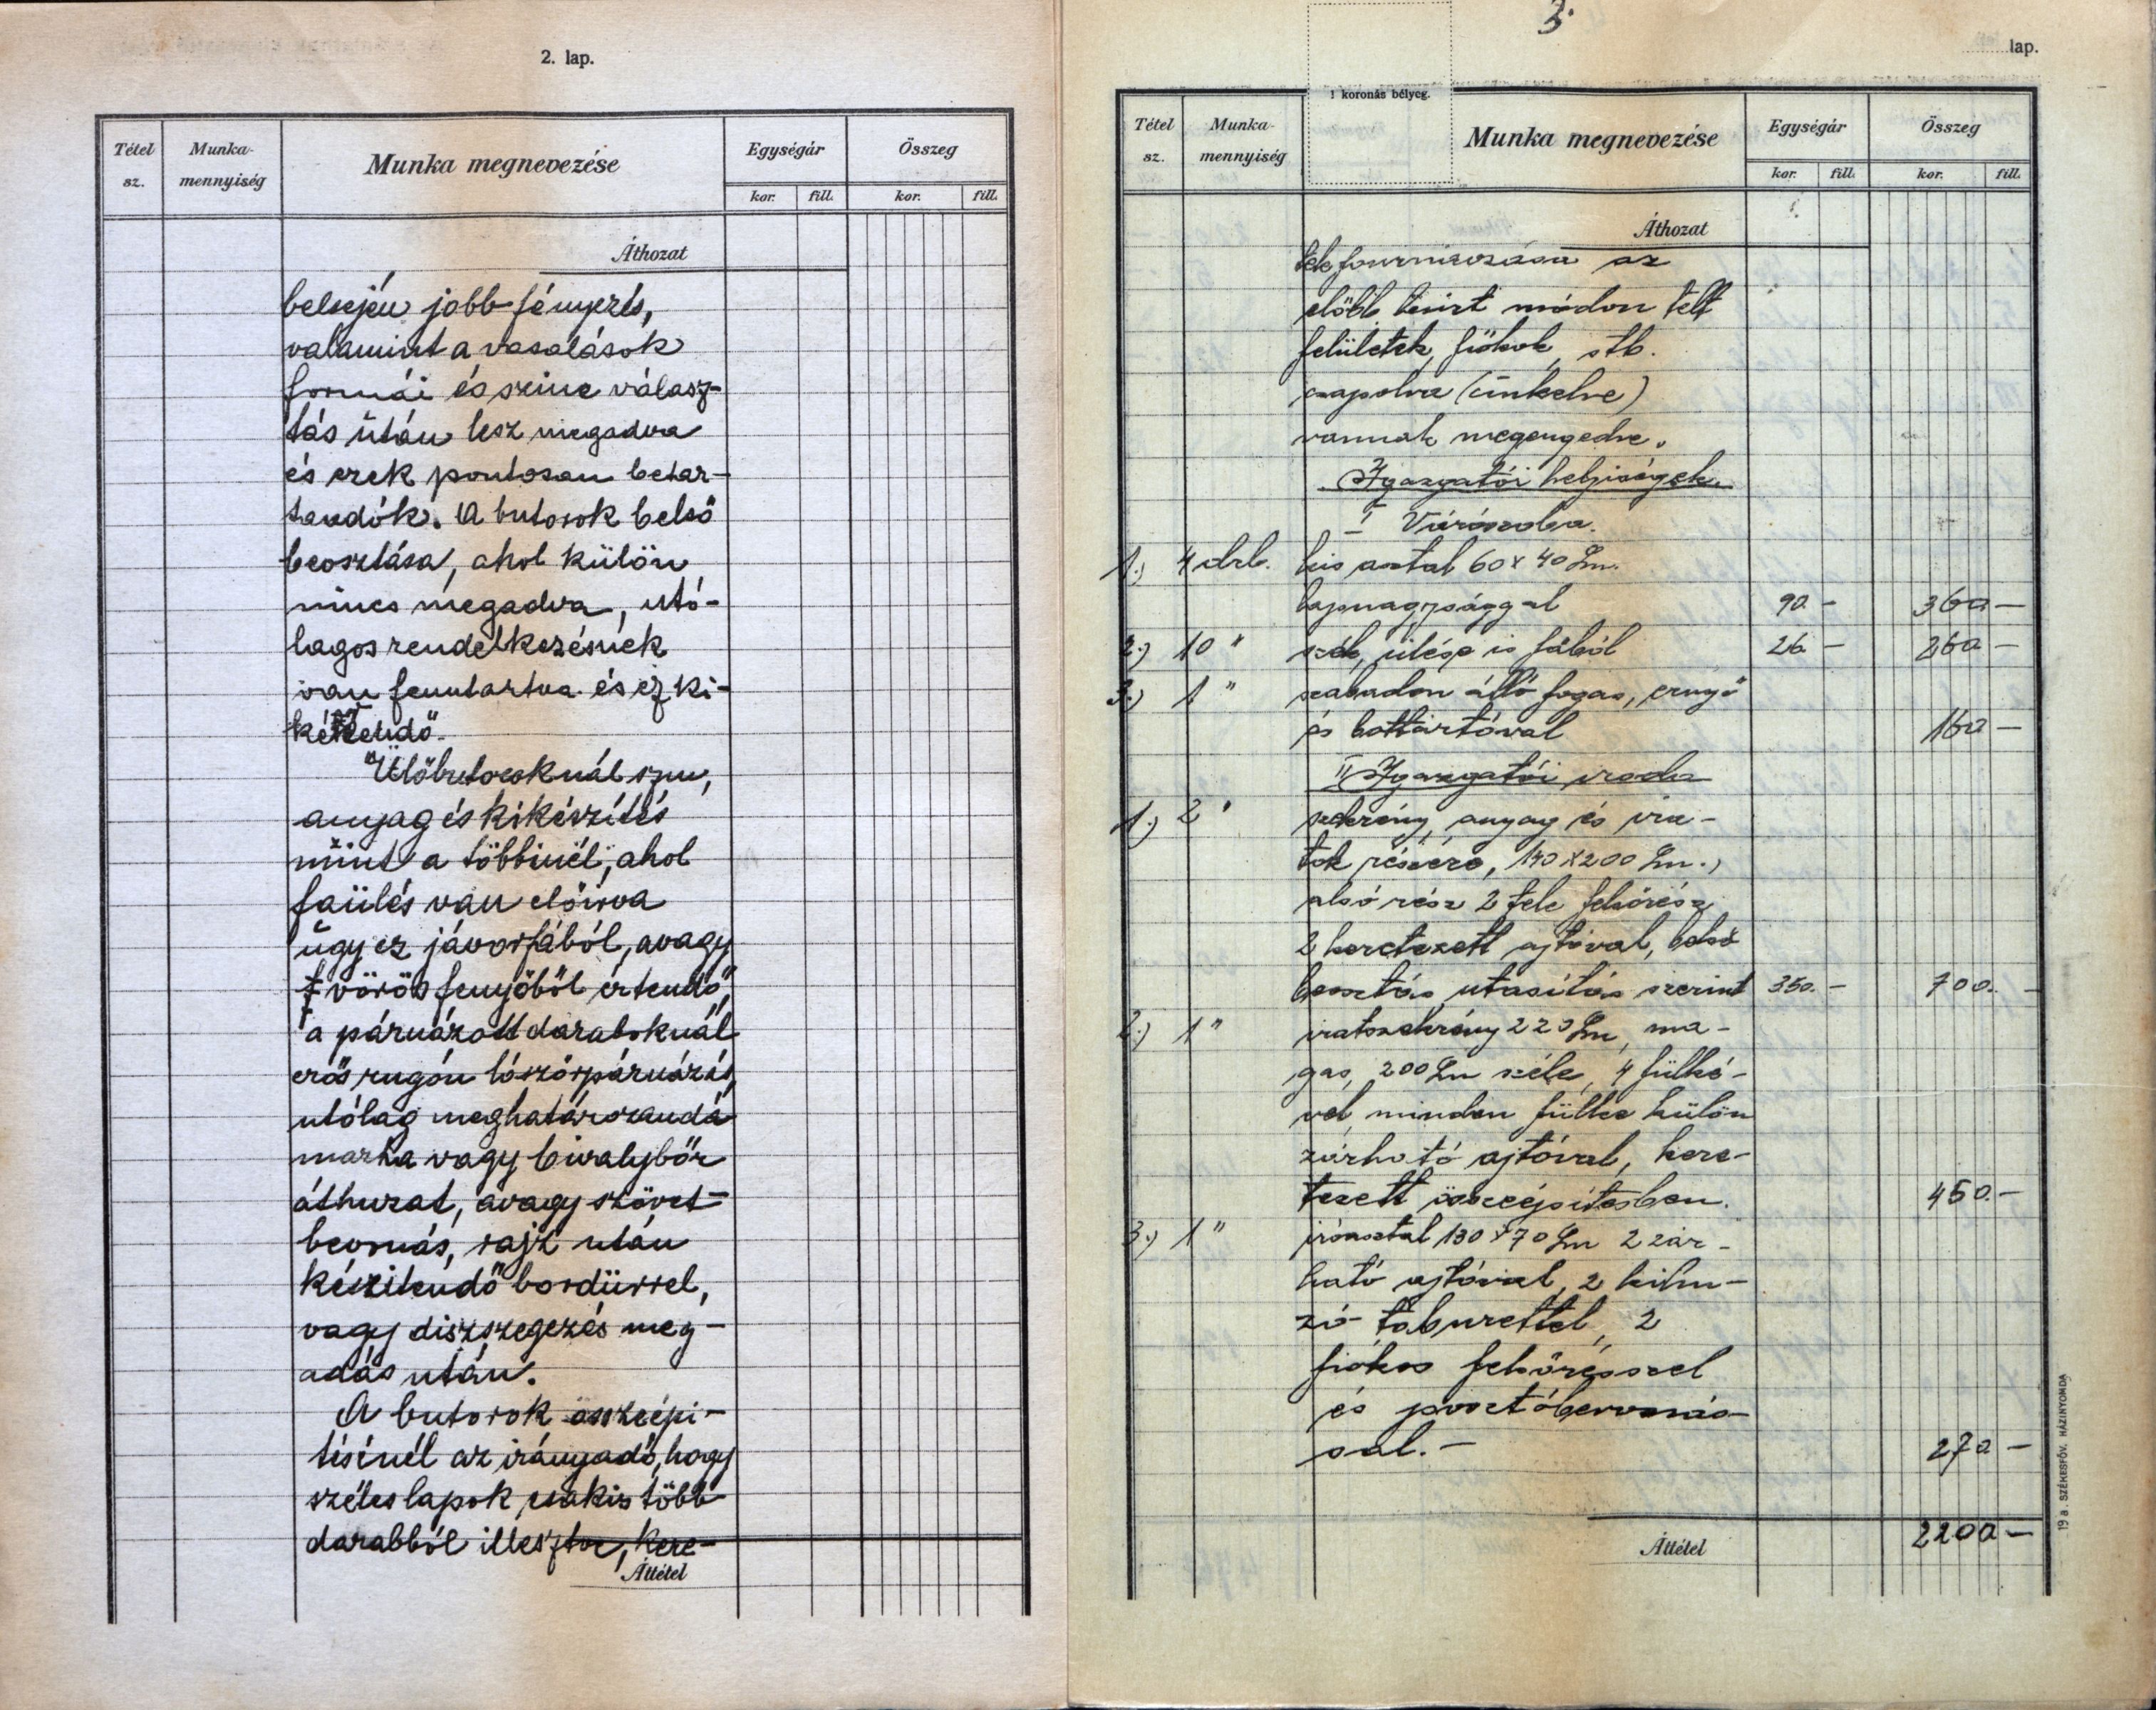 2. lap.
Tétel sz.
Munka-mennyiség
Munka megnevezése
Egységár
Összeg
kor. fill. kor. fill.
Áthozat
belsején jobb fényezés,
valamint a vasalások
formái és szine válasz-
tás után lesz megadva
és ezek pontosan betar-
tandók. A butorok belső
beosztása, ahol külön
nincs megadva, utó-
lagos rendelkezésnek
van fenntartva és ez ki-
kérendő.
Ülőbutoroknál szin,
anyag és kikészítés
mint a többinél, ahol
faülés van előirva
úgy ez jávorfából, avagy
vörös fenyőből értendő,
a párnázott daraboknál
erős rugón lószőrpárnázás,
utólag meghatározandó
marha vagy bivalybőr
áthuzat, avagy szövet-
bevonás, rajz után
készitendő bordürrel,
vagy diszszegezés meg-
adás után.
A butorok összeépi-
tésénél az irányadó, hogy
széles lapok csakis több
darabból illesztve, kere-
Áttétel
3.
lap.
1 koronás bélyeg.
Tétel sz.
Munka-mennyiség
Munka megnevezése
Egységár
Összeg
kor. fill. kor. fill.
Áthozat
az
előbb leirt módon telt
felületek, fiókok, stb.
csapolva (cinkelve)
vannak megengedve.
Igazgatói helyiségek.
I Várószoba.
1.) 4 drb. kis asztal 60 x 40 cm.
lapnagysággal 90.- 360 -
2.) 10 " szék, ülése is fából 26 - 260 -
3.) 1 " szabadon álló fogas, ernyő
és bottartóval 160 -
II Igazgatói iroda
1.) 2 " szekrény, anyag és ira-
tok részére, 140 x 200 cm.,
alsó rész 2 tele felsőrész
2 keretezett ajtóval, belső
beosztás utasítás szerint 350.- 700. -
2.) 1 " iratszekrény 220 cm ma-
gas, 200 cm széle, 4 fülké-
vel, minden fülke külön
zárható ajtóval, kere-
tezett összeépítésben. 450.-
3.) 1 " íróasztal 130 x 70 cm 2 zár-
ható ajtóval, 2 kihu-
zó taburettel, 2
fiókos felsőrésszel
és posztóbevonás-
sal. - 270 -
Áttétel 2200 -
19 a. SZÉKESFŐV. HÁZINYOMDA